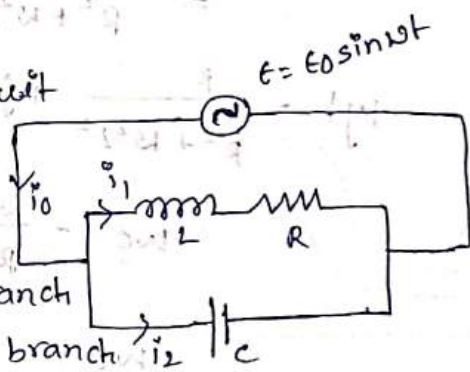 ε = ε0 sin ωt
uit
~
i0
i1
L
R
anch
branch i2
C